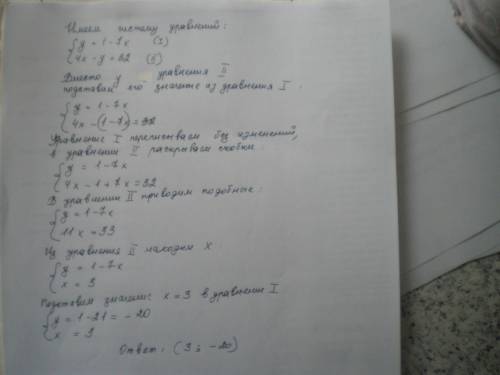 Имеем систему уравнений:
{ y = 1-7x (I)
{ 4x - y = 32 (II)
Вместо y уравнения II
подставим его значение из уравнения I.
{ y = 1-7x
{ 4x - (1-7x) = 32
Уравнение I переписываем без изменений,
в уравнении II раскрываем скобки:
{ y = 1-7x
{ 4x - 1 + 7x = 32
В уравнении II приводим подобные:
{ y = 1-7x
{ 11x = 33
Из уравнения II находим x:
{ y = 1-7x
{ x = 3
Подставим значение x = 3 в уравнение I
{ y = 1-21 = -20
{ x = 3
Ответ: (3; -20)